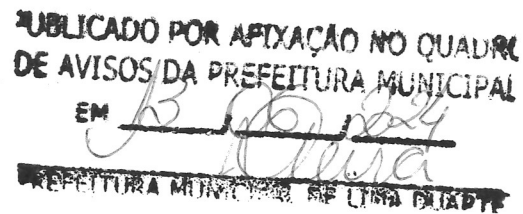 PUBLICADO POR AFIXAÇÃO NO QUADRO
DE AVISOS DA PREFEITURA MUNICIPAL
EM 13 / 06 / 2024
PREFEITURA MUNICIPAL DE LIMA DUARTE